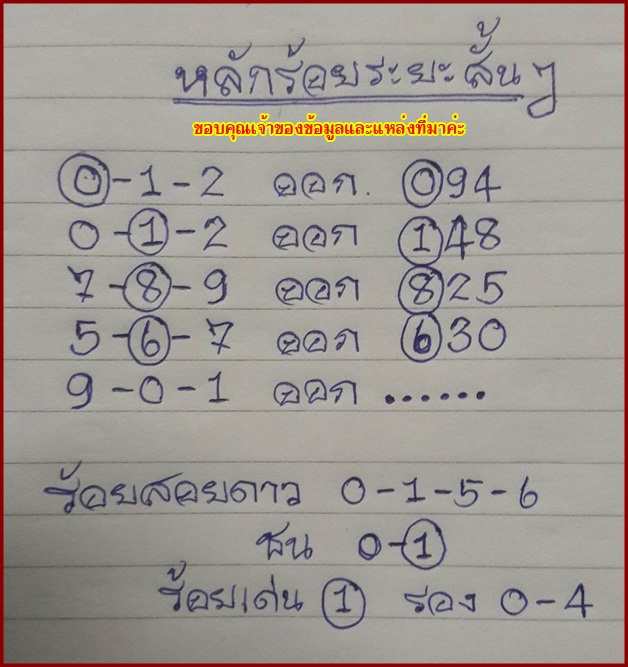 หลักร้อยระยะสั้นๆ
ขอบคุณเจ้าของข้อมูลและแหล่งที่มาค่ะ
0-1-2 ออก. 094
0-1-2 ออก 148
7-8-9 ออก 825
5-6-7 ออก 630
9-0-1 ออก ......
ร้อยสอยดาว 0-1-5-6
ชน 0-1
ร้อยเด่น 1 รอง 0-4